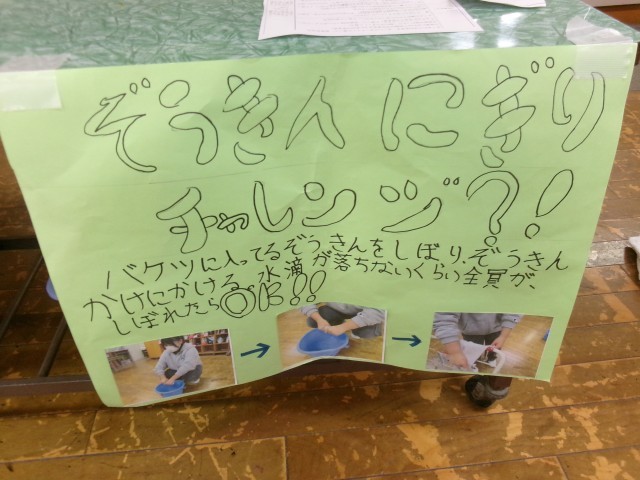 ぞうきんにぎり
チャレンジ?!
バケツに入ってるぞうきんをしぼり、ぞうきん
かけにかける。水滴が落ちないくらい全員が、
しぼれたらOK!!